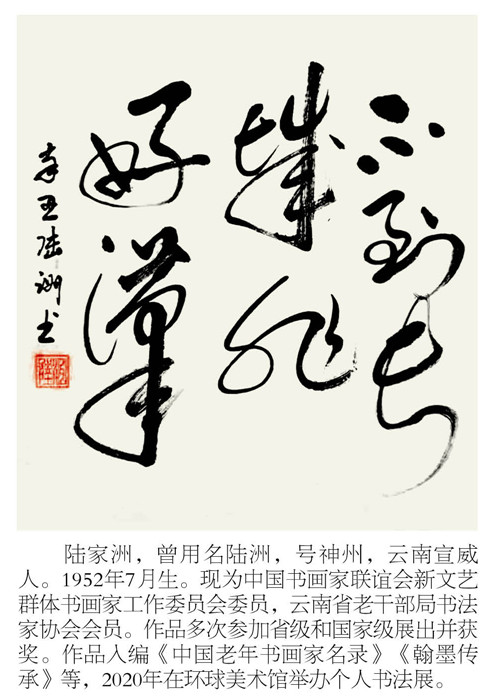 不到长
城非
好漢
辛丑陆洲书
陆家洲，曾用名陆洲，号神州，云南宣威
人。1952年7月生。现为中国书画家联谊会新文艺
群体书画家工作委员会委员，云南省老干部局书法
家协会会员。作品多次参加省级和国家级展出并获
奖。作品入编《中国老年书画家名录》《翰墨传
承》等，2020年在环球美术馆举办个人书法展。